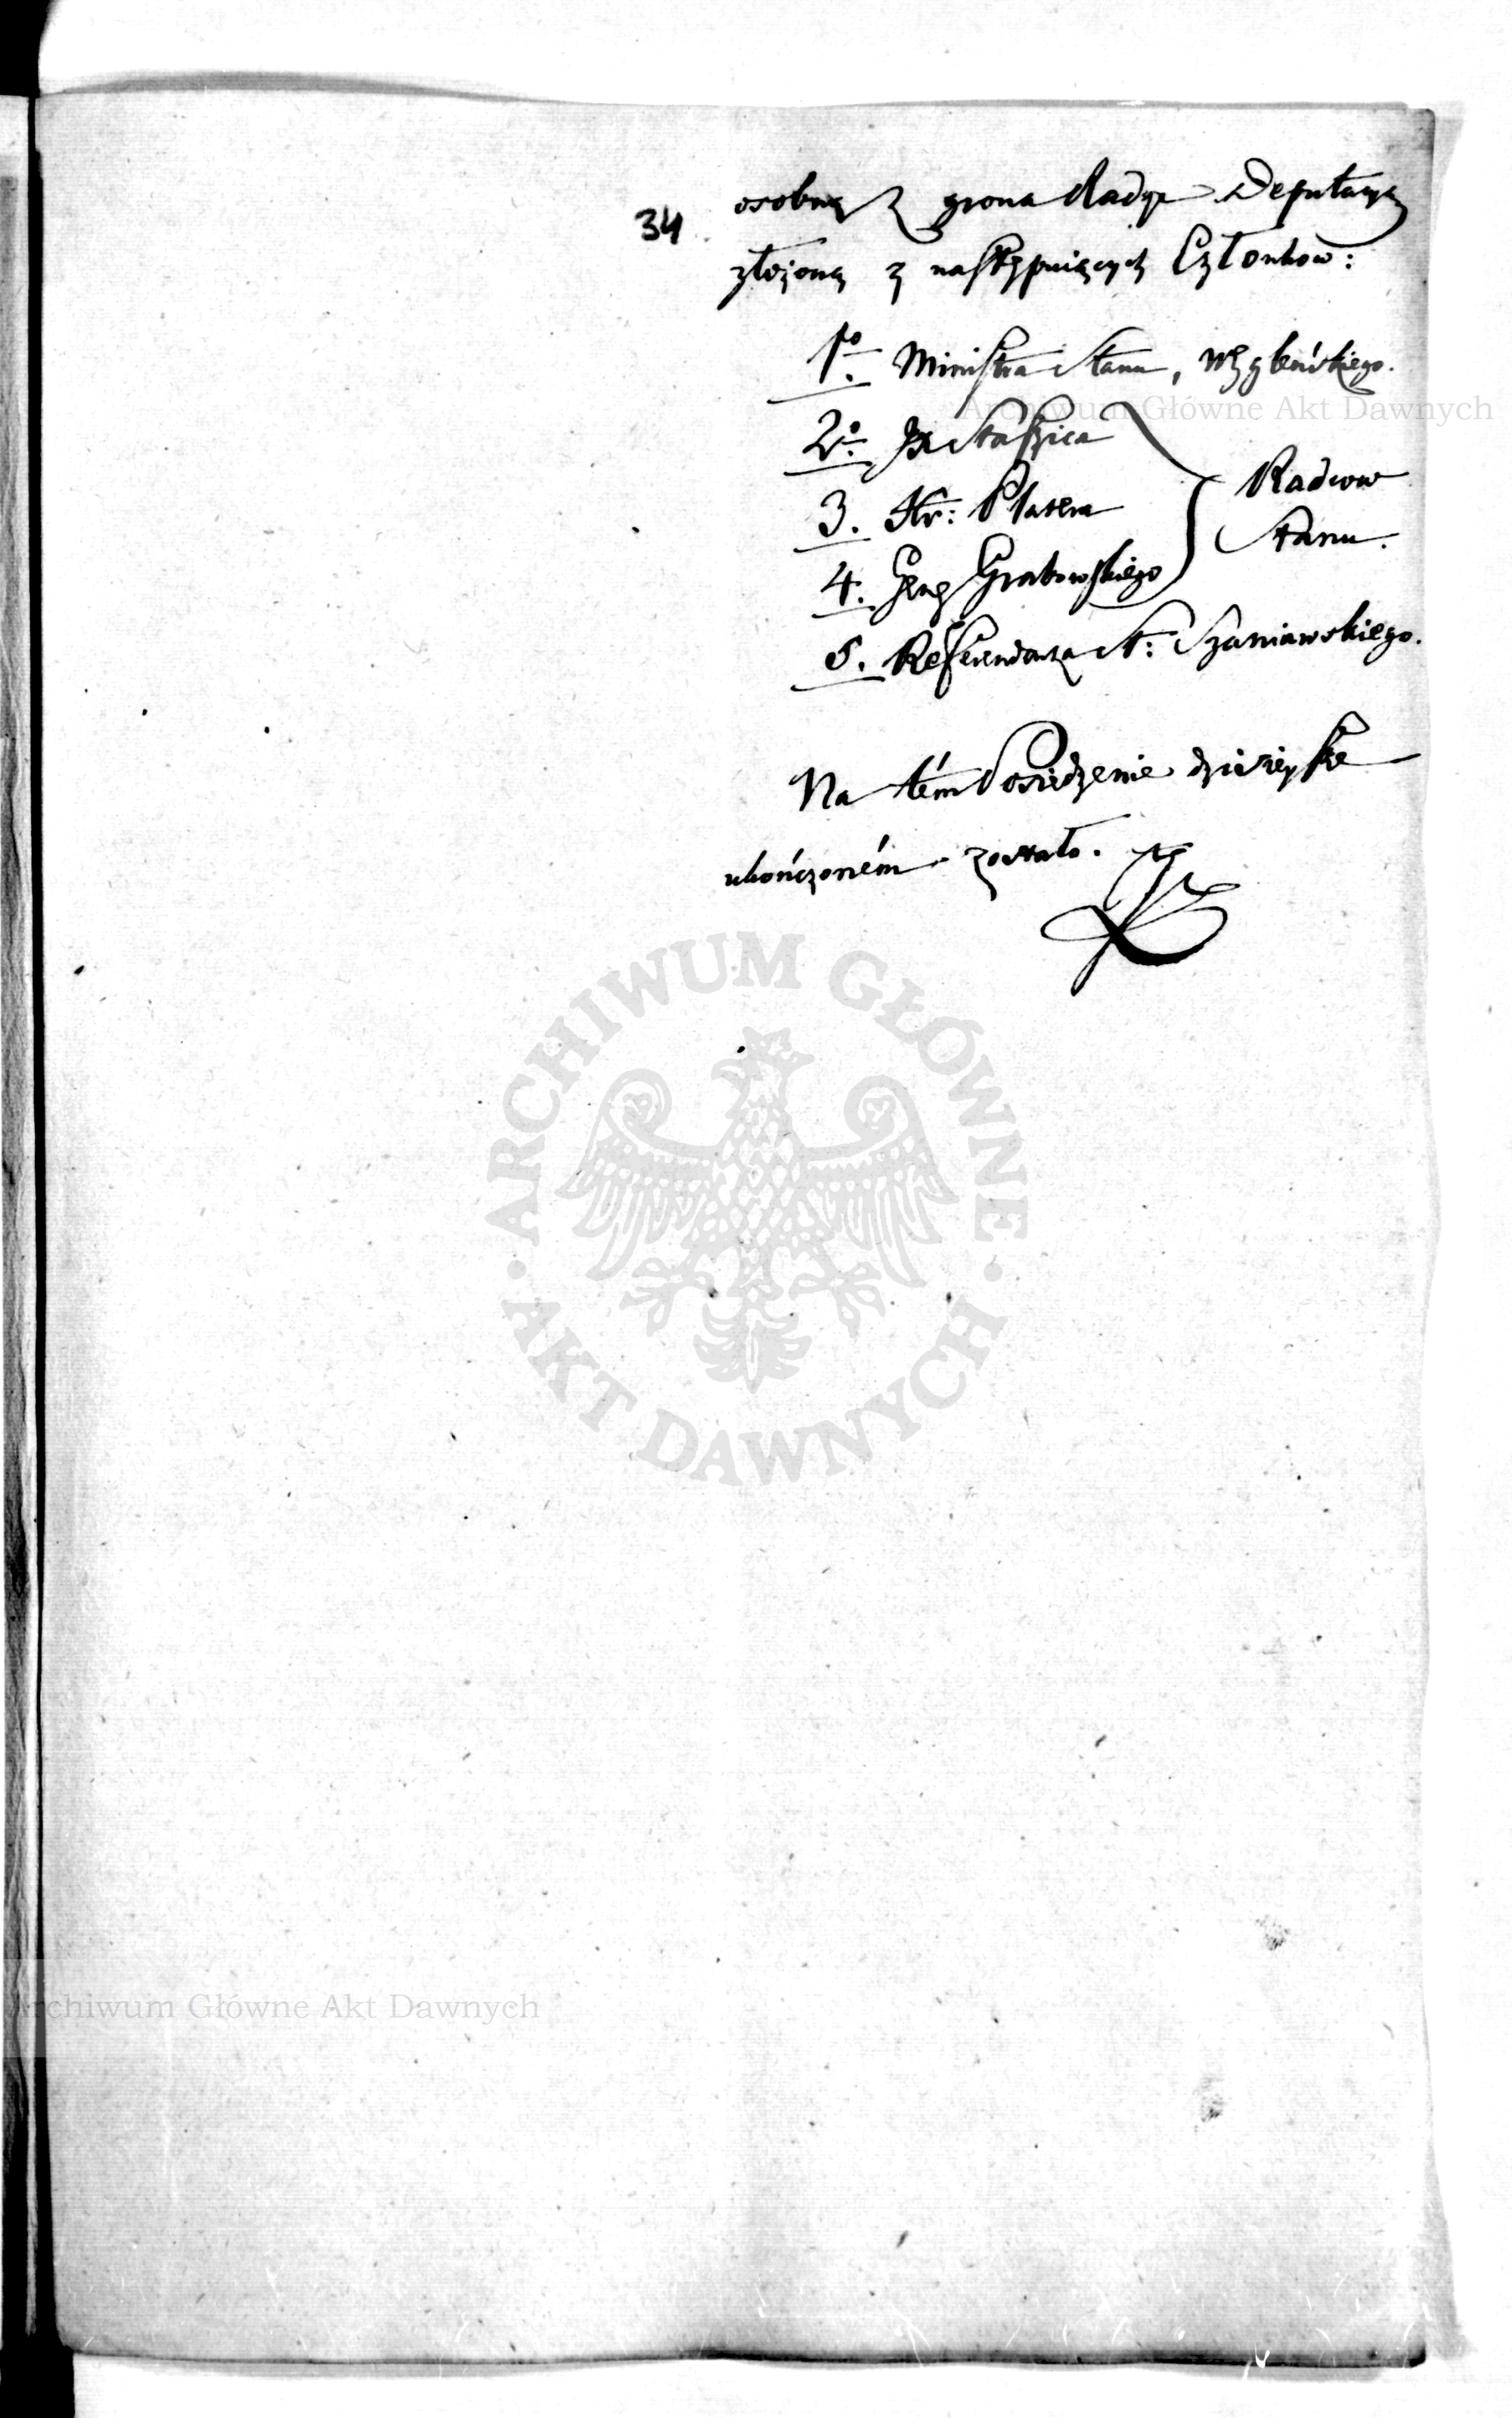 34
osobną z grona Rady Deputacyą
złożoną z następuiących Członkow:
1o. Ministra Stanu, Węgleńskiego.
Archiwum Główne Akt Dawnych
2o. X Staszica
3. Hr: Platera
4. Gen Grabowskiego
Radcow
Stanu.
5. Referendarza St: Szaniawskiego.
Na tém Posiedzenie dzisieysze
ukończoném zostało.
ARCHIWUM GŁÓWNE
AKT DAWNYCH
Archiwum Główne Akt Dawnych